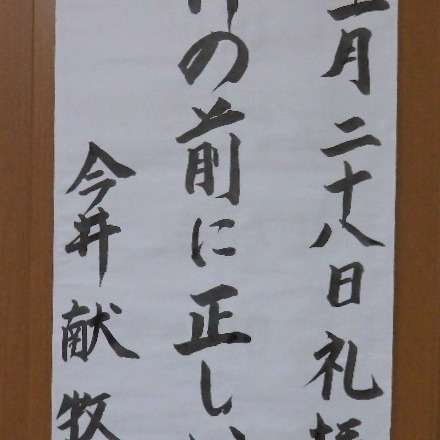 月二十八日礼拝
の前に正しい
今井献牧